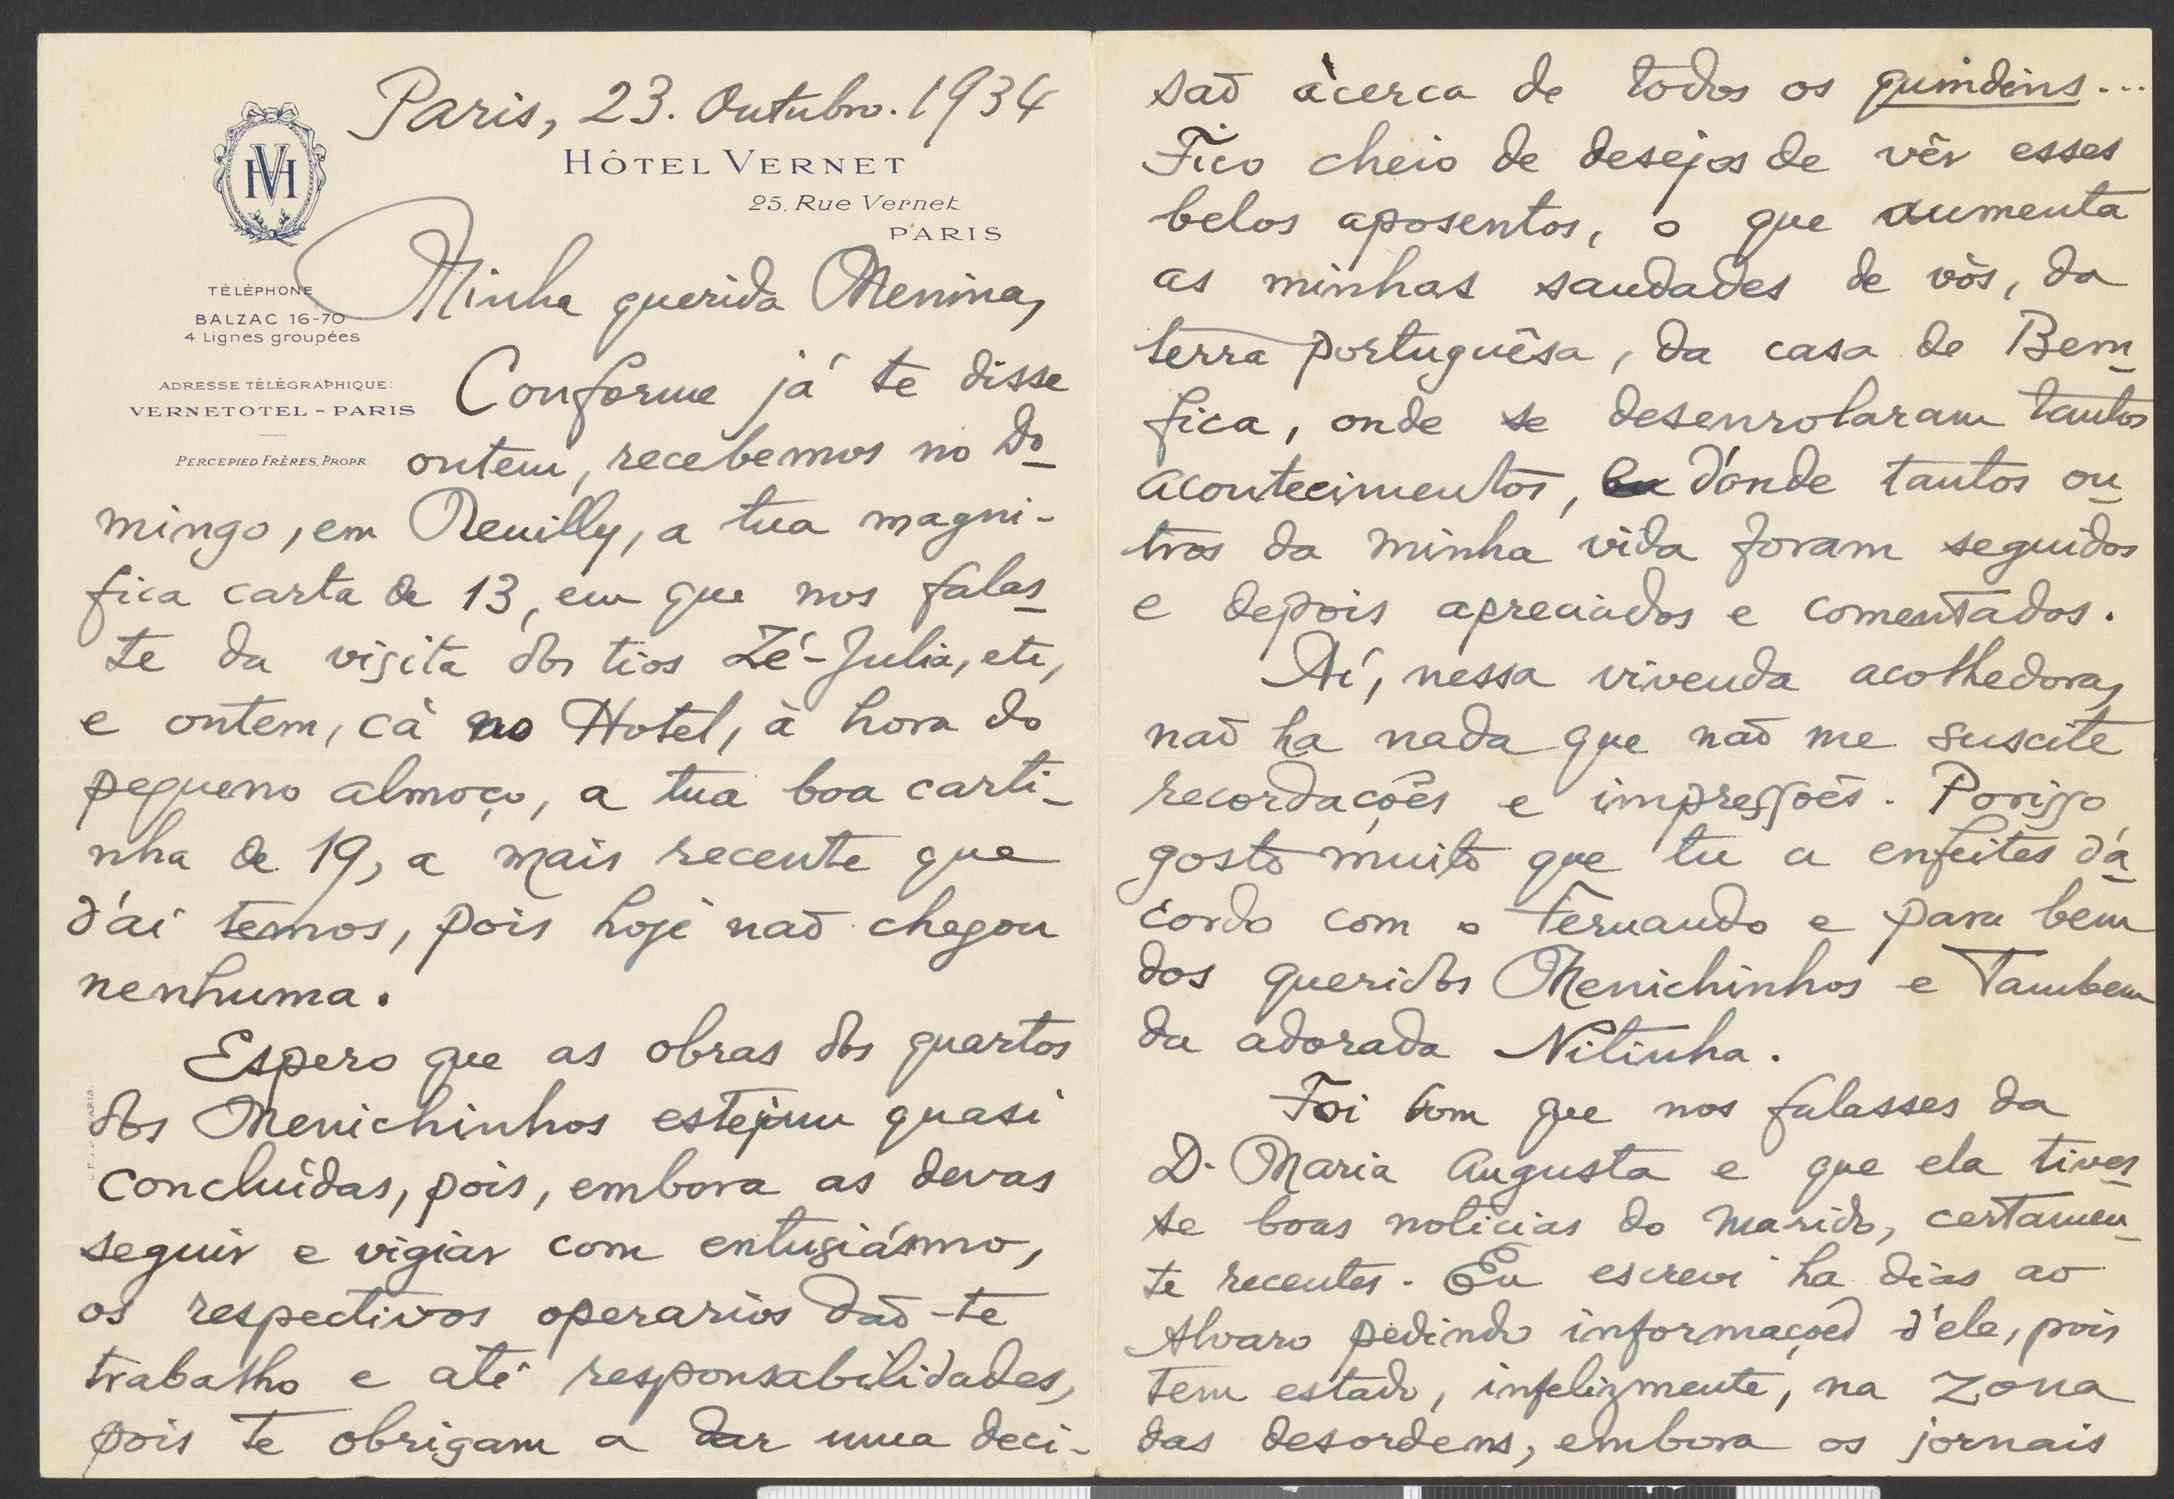 Paris, 23. Outubro. 1934
HÔTEL VERNET
25. Rue Vernet
PARIS
VH
TÉLÉPHONE
BALZAC 16-70
4 Lignes groupées
ADRESSE TÉLÉGRAPHIQUE:
VERNETOTEL - PARIS
PERCEPIED FRÈRES, PROPR.
Minha querida Menina,
Conforme já te disse
ontem, recebemos no Do-
mingo, em Neuilly, a tua magni-
fica carta de 13, em que nos falas-
te da visita dos tios Zé-Julia, etc,
e ontem, cá no Hotel, à hora do
pequeno almoço, a tua boa carti-
nha de 19, a mais recente que
d'aí temos, pois hoje não chegou
nenhuma.
Espero que as obras dos quartos
dos Menichinhos estejam quasi
concluídas, pois, embora as devas
seguir e vigiar com entusiásmo,
os respectivos operarios dão-te
trabalho e até responsabilidades,
pois te obrigam a dar uma deci-
são àcerca de todos os quindins...
Fico cheio de desejos de vêr esses
belos aposentos, o que aumenta
as minhas saudades de vós, da
terra portuguêsa, da casa de Bem-
fica, onde se desenrolaram tantos
acontecimentos, d'onde tantos ou-
tros da minha vida foram seguidos
e depois apreciados e comentados.
Aí, nessa vivenda acolhedora,
não ha nada que não me suscite
recordações e impressões. Porisso
gosto muito que tu a enfeites d'a-
cordo com o Fernando e para bem
dos queridos Menichinhos e Tambem
da adorada Nitinha.
Foi bom que nos falasses da
D. Maria Augusta e que ela tives-
se boas noticias do marido, certamen-
te recentes. Eu escrevi ha dias ao
Alvaro pedindo informações d'ele, pois
tem estado, infelizmente, na zona
das desordens, embora os jornais